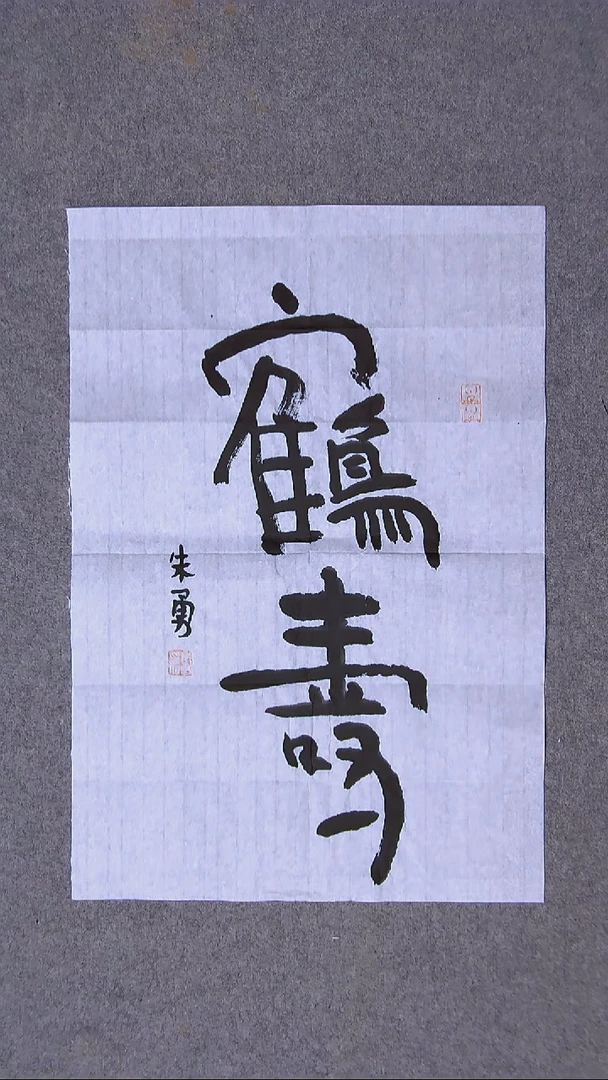 鶴壽
朱勇